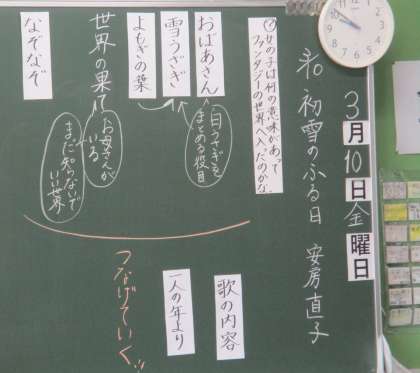 3月10日金曜日
初雪のふる日 安房直子
女の子は何の意味があって
ファンタジーの世界へ入ったのかな
おばあさん
白うさぎを
まとめる役目
雪うさぎ
よもぎの葉
世界の果て
お母さんが
いる
まだ知らないで
いい世界
なぞなぞ
歌の内容
一人の年より
つなげていく